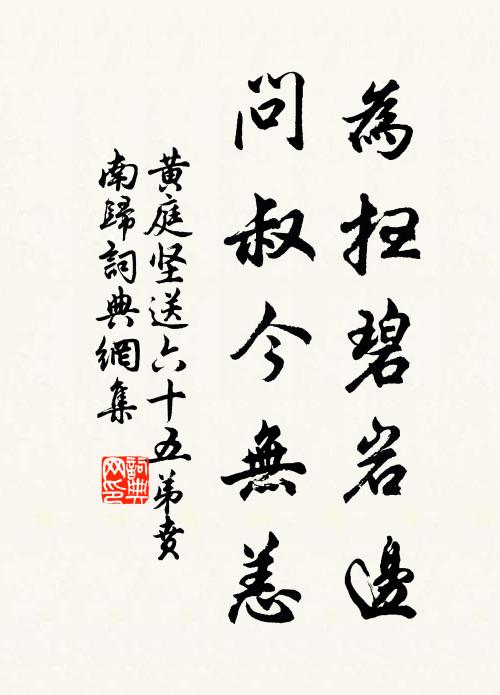 為扫碧岩邊
問叔今無恙
黄庭坚送六十五弟賁
南歸詞典網集
詞典
网印